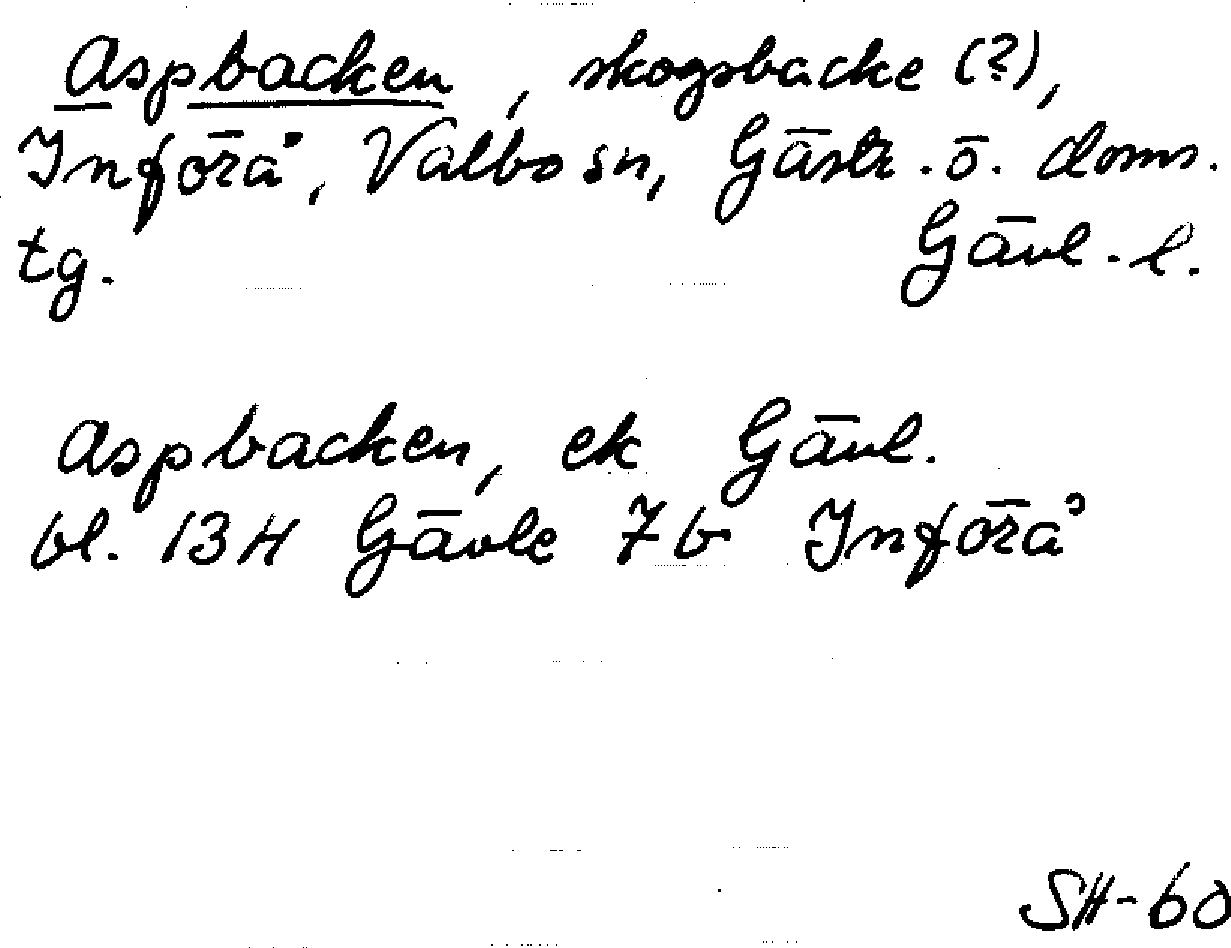 Aspbacken, skogsbacke (?),
Införå, Valbo sn, Gästr. ö. doms.
tg. Gävl. l.
Aspbacken, ek Gävl.
bl. 13H Gävle 7b Införå
SH-60